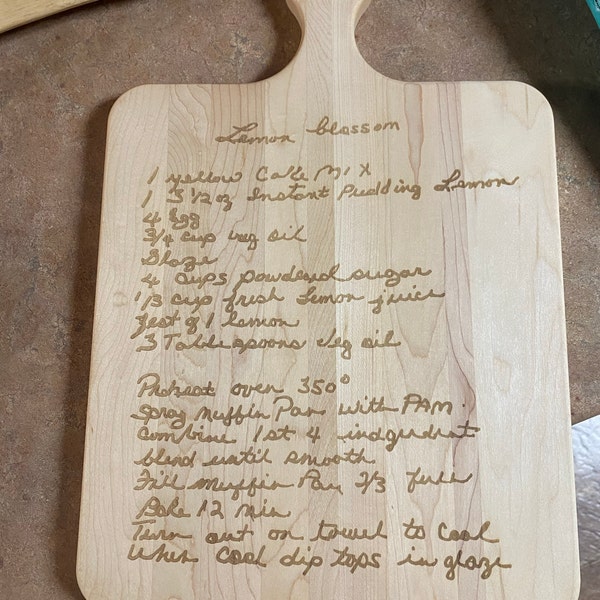 Lemon blossom
1 yellow Cake Mix
1 3 1/2 oz Instant Pudding Lemon
4 Egg
3/4 cup veg oil
Glaze
4 cups powdered sugar
1/3 cup fresh Lemon juice
Zest of 1 lemon
3 Tablespoons Veg oil
Preheat oven 350°
Spray Muffin Pan with PAM.
Combine 1st 4 indgredrent
blend until smooth
Fill muffin Pan 2/3 full
Bake 12 min
Turn out on towel to cool
When cool dip tops in glaze